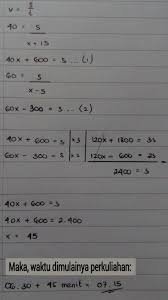 v = s/t
40 = s/x+15
40x + 600 = s ... (1)
60 = s/x-5
60x - 300 = s ... (2)
40x + 600 = s | x3 | 120x + 1800 = 3s
60x - 300 = s | x2 | 120x - 600 = 2s
2400 = s
40x + 600 = s
40x + 600 = 2.400
x = 45
Maka, waktu dimulainya perkuliahan:
06.30 + 45 menit = 07.15